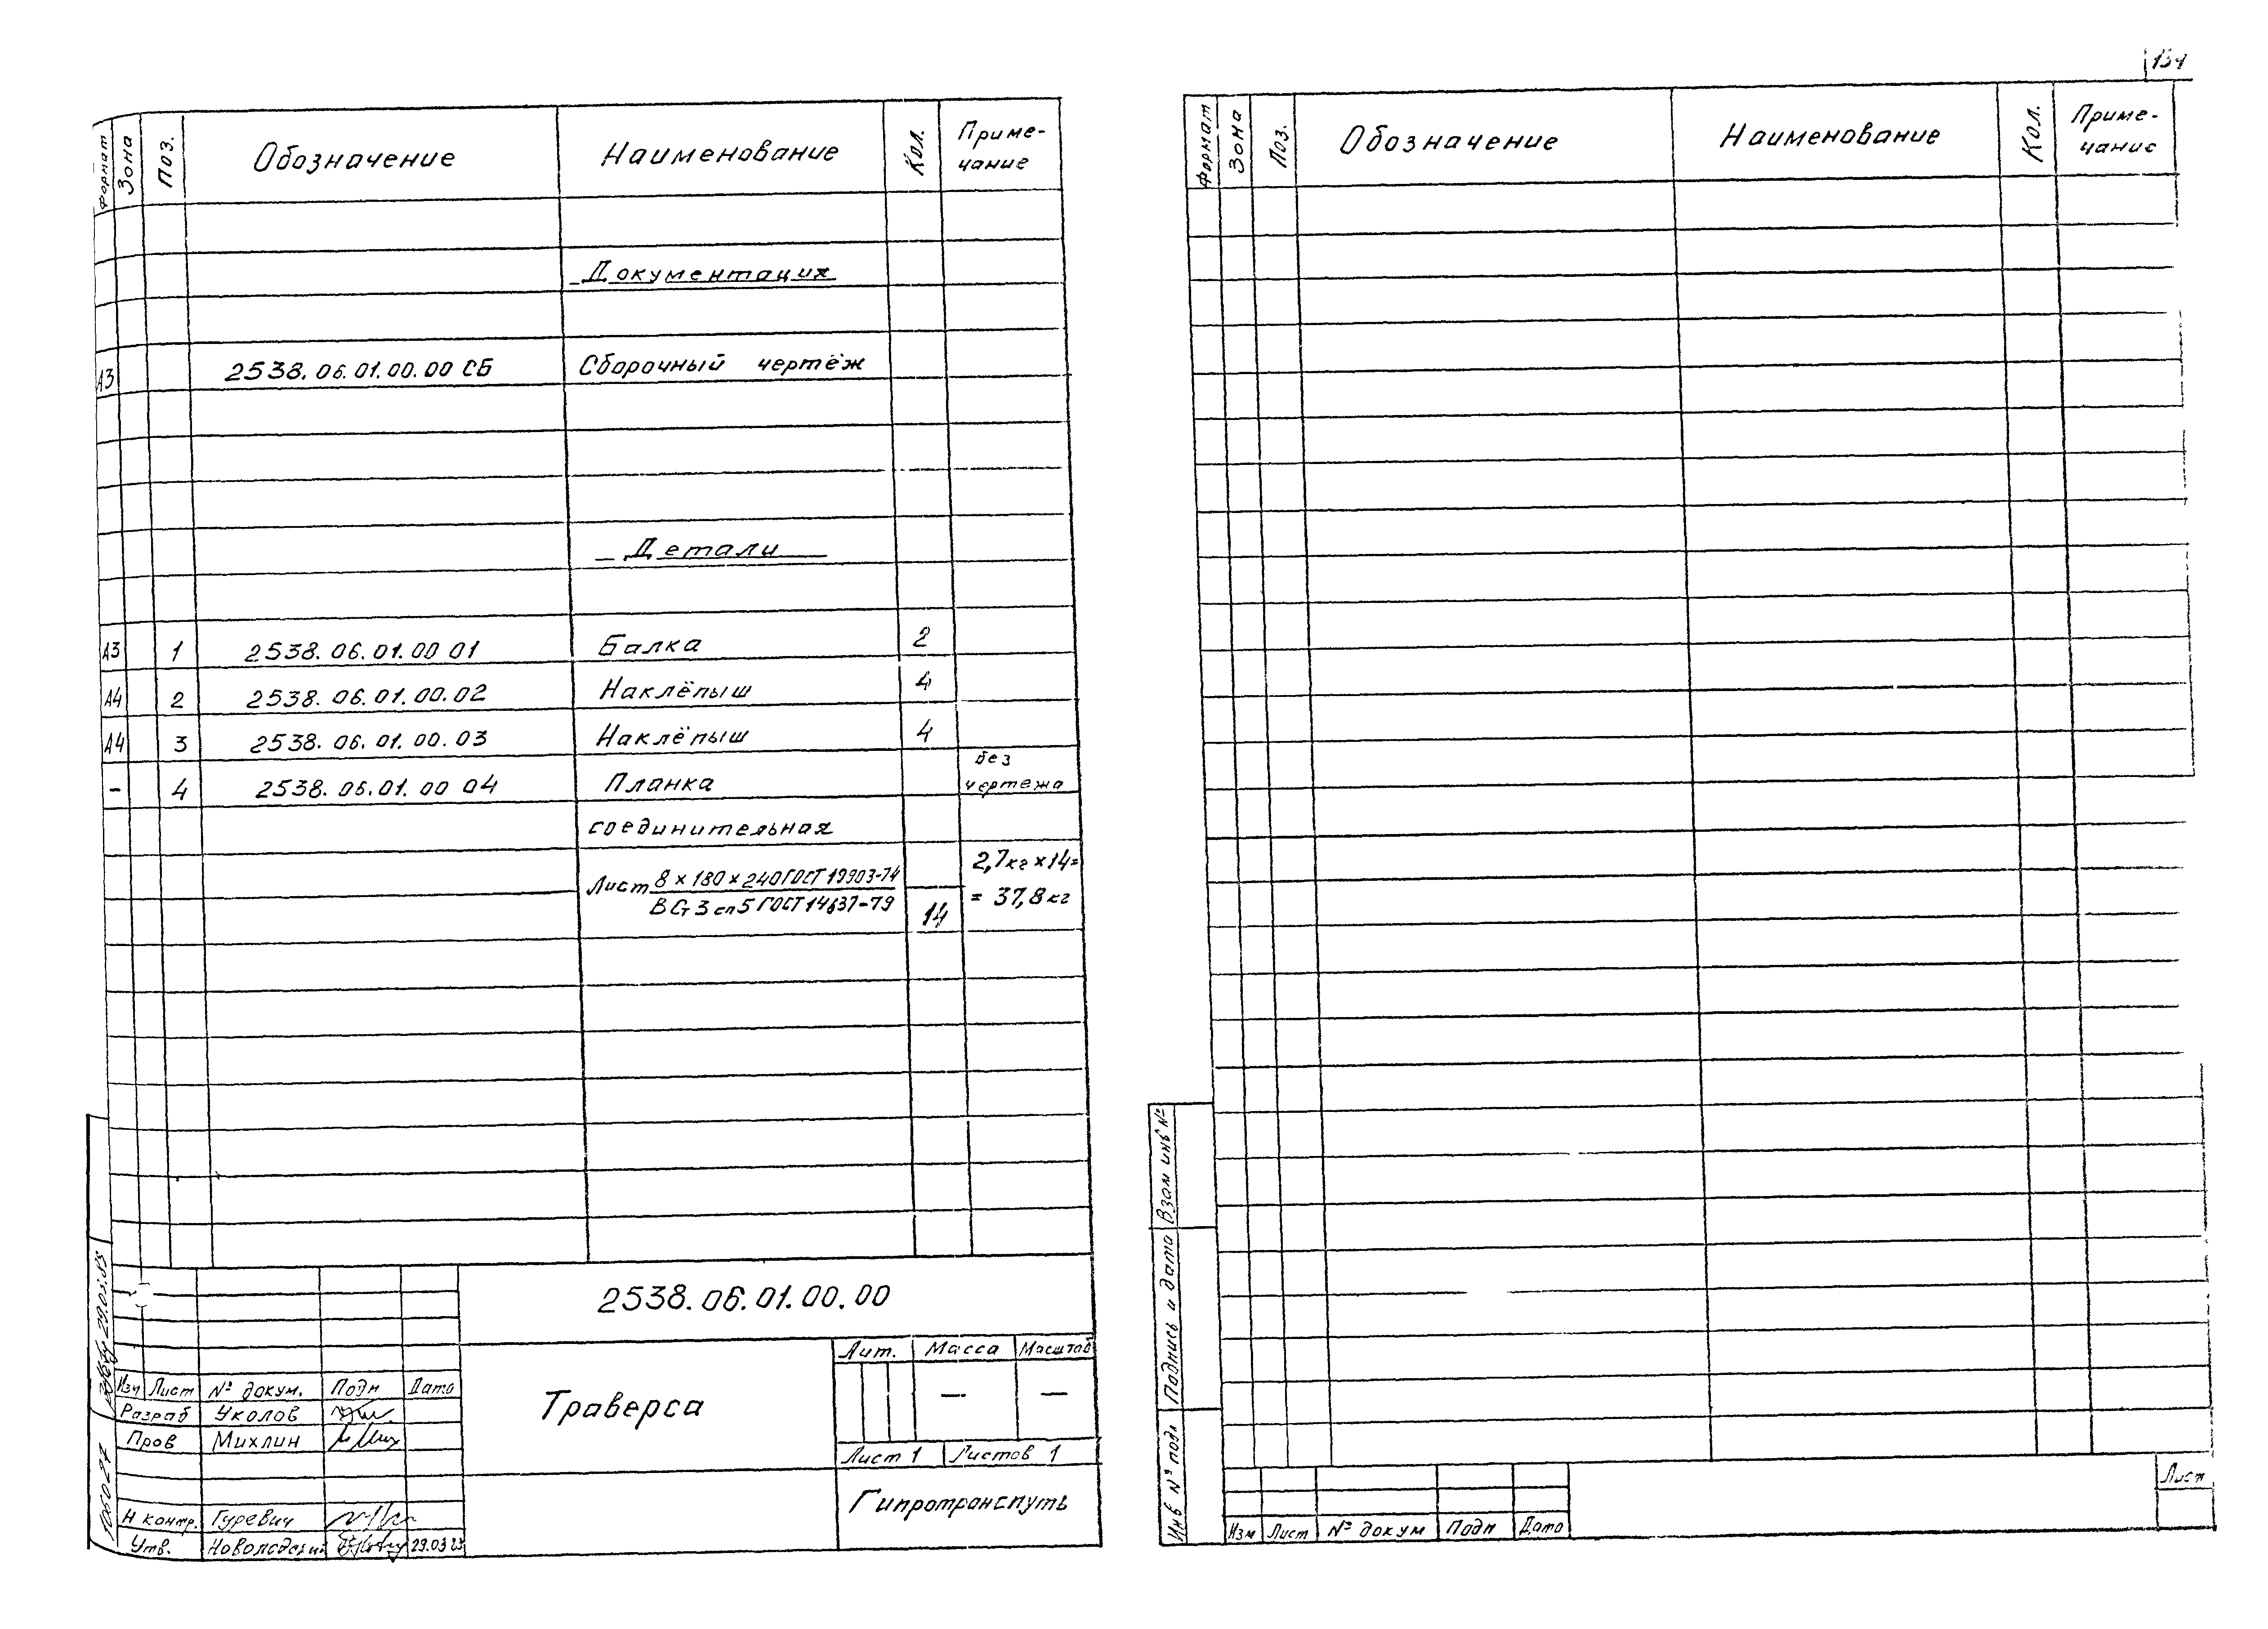 134
Формат Зона Поз. Обозначение Наименование Кол. Приме-
чание
Документация
А3 2538.06.01.00.00 СБ Сборочный чертёж
Детали
А3 1 2538.06.01.00 01 Балка 2
А4 2 2538.06.01.00.02 Наклёпыш 4
А4 3 2538.06.01.00.03 Наклёпыш 4
без
– 4 2538.06.01.00 04 Планка чертежа
соединительная
Лист 8×180×240 ГОСТ 19903-74 2,7кг×14=
ВСт3сп5 ГОСТ 14637-79 14 = 37,8 кг
2538.06.01.00.00
Траверса
Лит. Масса Масштаб
– –
Лист 1 Листов 1
Гипротранспуть
Изм Лист № докум. Подп Дата
Разраб Уколов
Пров Михлин
Н контр. Гуревич
Утв. 29.03
29.03.85
Формат Зона Поз. Обозначение Наименование Кол. Приме-
чание
Взам инв №
Подпись и дата
Инв № подл
Изм Лист № докум Подп Дата
Лист